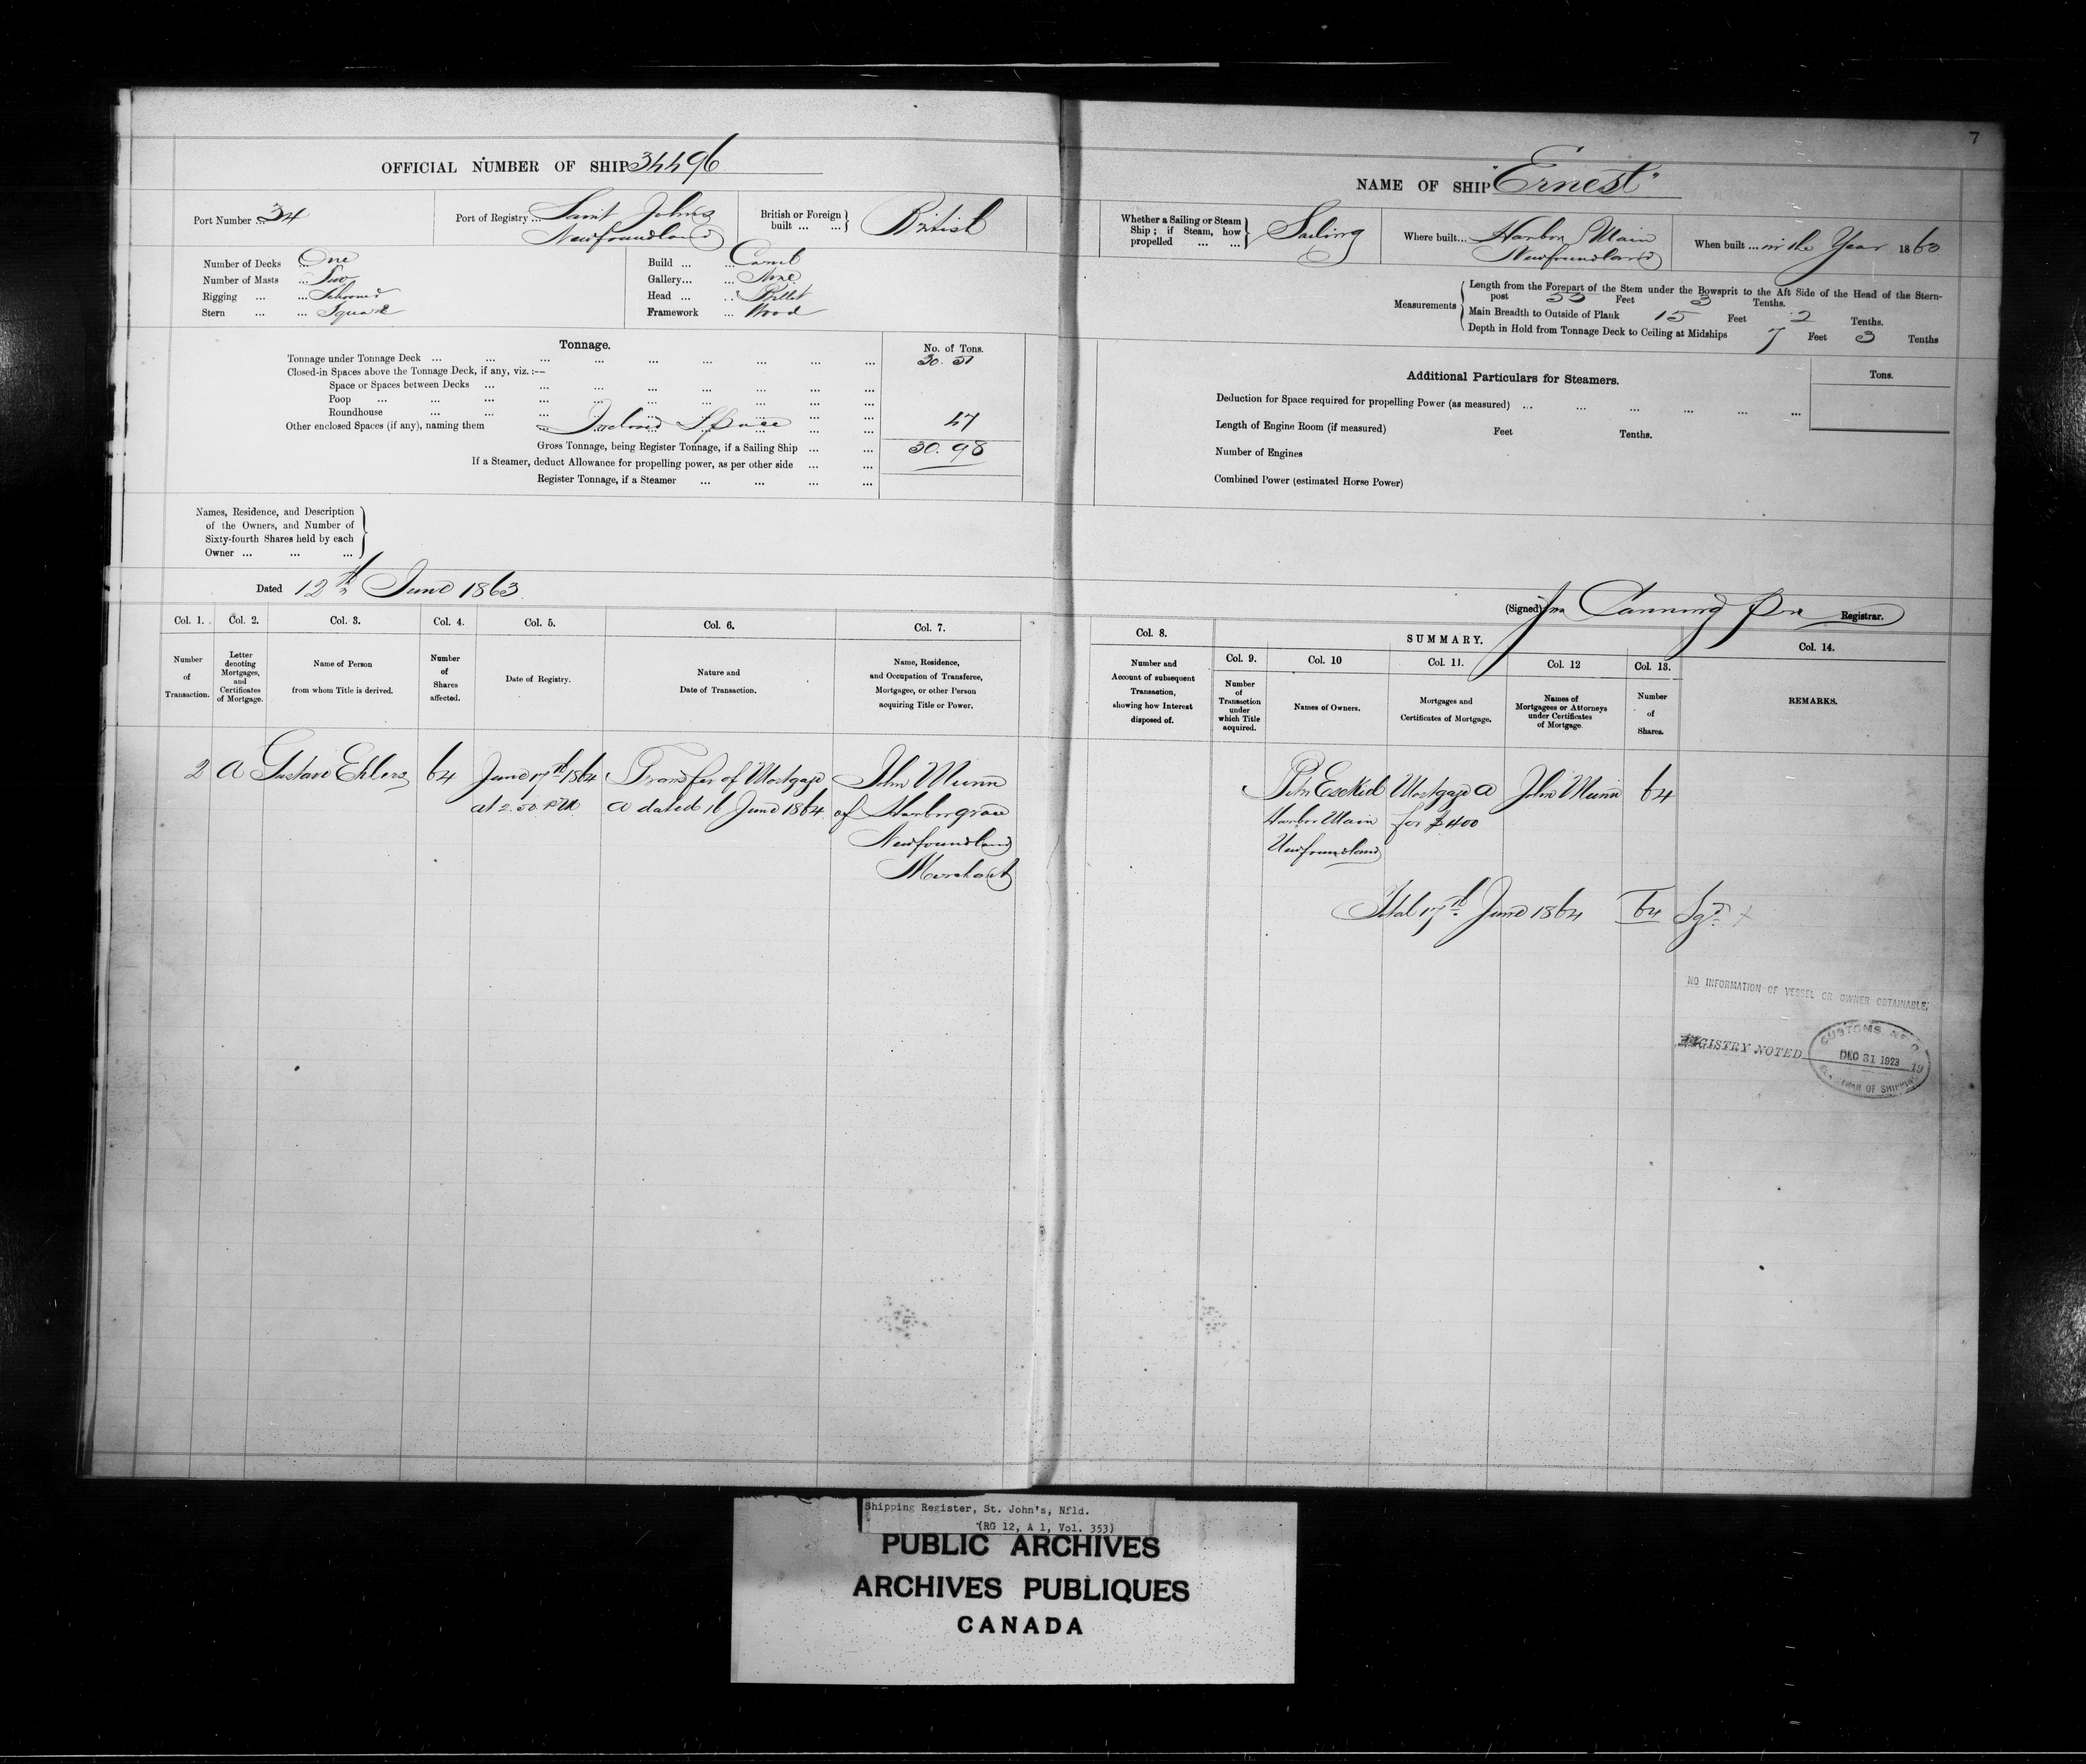 7
OFFICIAL NUMBER OF SHIP 34496
Port Number ... 34
Port of Registry ... Saint Johns
Newfoundland
British or Foreign built ... ... British
Number of Decks ... One
Number of Masts ... Two
Rigging ... ... Schooner
Stern ... ... Square
Build ... ... Carvel
Gallery ... ... None
Head ... ... Billet
Framework ... Wood
Tonnage.
No. of Tons.
Tonnage under Tonnage Deck ... ... ... ... ... ... ... ... ... 30. 51
Closed-in Spaces above the Tonnage Deck, if any, viz. :—
Space or Spaces between Decks ... ... ... ... ... ... ... ...
Poop ... ... ... ... ... ... ... ... ... ...
Roundhouse ... ... ... ... ... ... ... ...
Other enclosed Spaces (if any), naming them ... Inclosed Space ... ... 47
Gross Tonnage, being Register Tonnage, if a Sailing Ship ... ... 30. 98
If a Steamer, deduct Allowance for propelling power, as per other side ... ...
Register Tonnage, if a Steamer ... ... ... ...
Names, Residence, and Description
of the Owners, and Number of
Sixty-fourth Shares held by each
Owner ... ... ...
Dated 12th June 1863
Col. 1. Col. 2. Col. 3. Col. 4. Col. 5. Col. 6. Col. 7.
Number of Transaction.
Letter denoting Mortgages, and Certificates of Mortgage.
Name of Person from whom Title is derived.
Number of Shares affected.
Date of Registry.
Nature and Date of Transaction.
Name, Residence, and Occupation of Transferee, Mortgagee, or other Person acquiring Title or Power.
2 A Gustave Ehlers 64 June 17th 1864 Transfer of Mortgage John Munn
at 2.50 PM A dated 16 June 1864 of Harborgrace
Newfoundland
Merchant
NAME OF SHIP "Ernest"
Whether a Sailing or Steam Ship ; if Steam, how propelled ... ... Sailing
Where built ... Harbor Main
Newfoundland
When built ... in the Year 1863
Measurements
Length from the Forepart of the Stem under the Bowsprit to the Aft Side of the Head of the Stern-
post 53 Feet 3 Tenths.
Main Breadth to Outside of Plank 15 Feet 2 Tenths.
Depth in Hold from Tonnage Deck to Ceiling at Midships 7 Feet 3 Tenths
Additional Particulars for Steamers.
Tons.
Deduction for Space required for propelling Power (as measured) ... ... ... ... ... ...
Length of Engine Room (if measured) Feet Tenths.
Number of Engines
Combined Power (estimated Horse Power)
(Signed) Canning Registrar.
Col. 8. SUMMARY. Col. 14.
Col. 9. Col. 10 Col. 11. Col. 12 Col. 13.
Number and Account of subsequent Transaction, showing how Interest disposed of.
Number of Transaction under which Title acquired.
Names of Owners.
Mortgages and Certificates of Mortgage.
Names of Mortgagees or Attorneys under Certificates of Mortgage
Number of Shares.
REMARKS.
Ezekiel Mortgage A John Munn 64
Harbor Main for £400
Newfoundland
Total 17th June 1864 64 Sgd.
NO INFORMATION OF VESSEL OR OWNER OBTAINABLE.
REGISTRY NOTED 19
CUSTOMS. NFLD
DEC 31 1923
REGISTRAR OF SHIPPING
Shipping Register, St. John's, Nfld.
(RG 12, A 1, Vol. 353)
PUBLIC ARCHIVES
ARCHIVES PUBLIQUES
CANADA